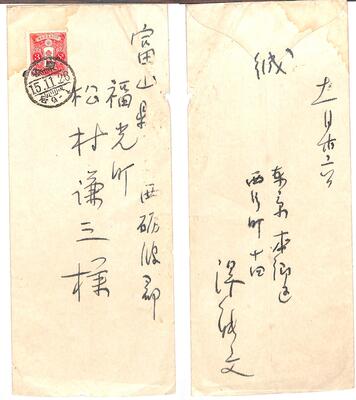 富山県
西砺波郡
福光町
松村謙三様
15.11.26
緘
十一月廿六日
東京本郷区
西片町十